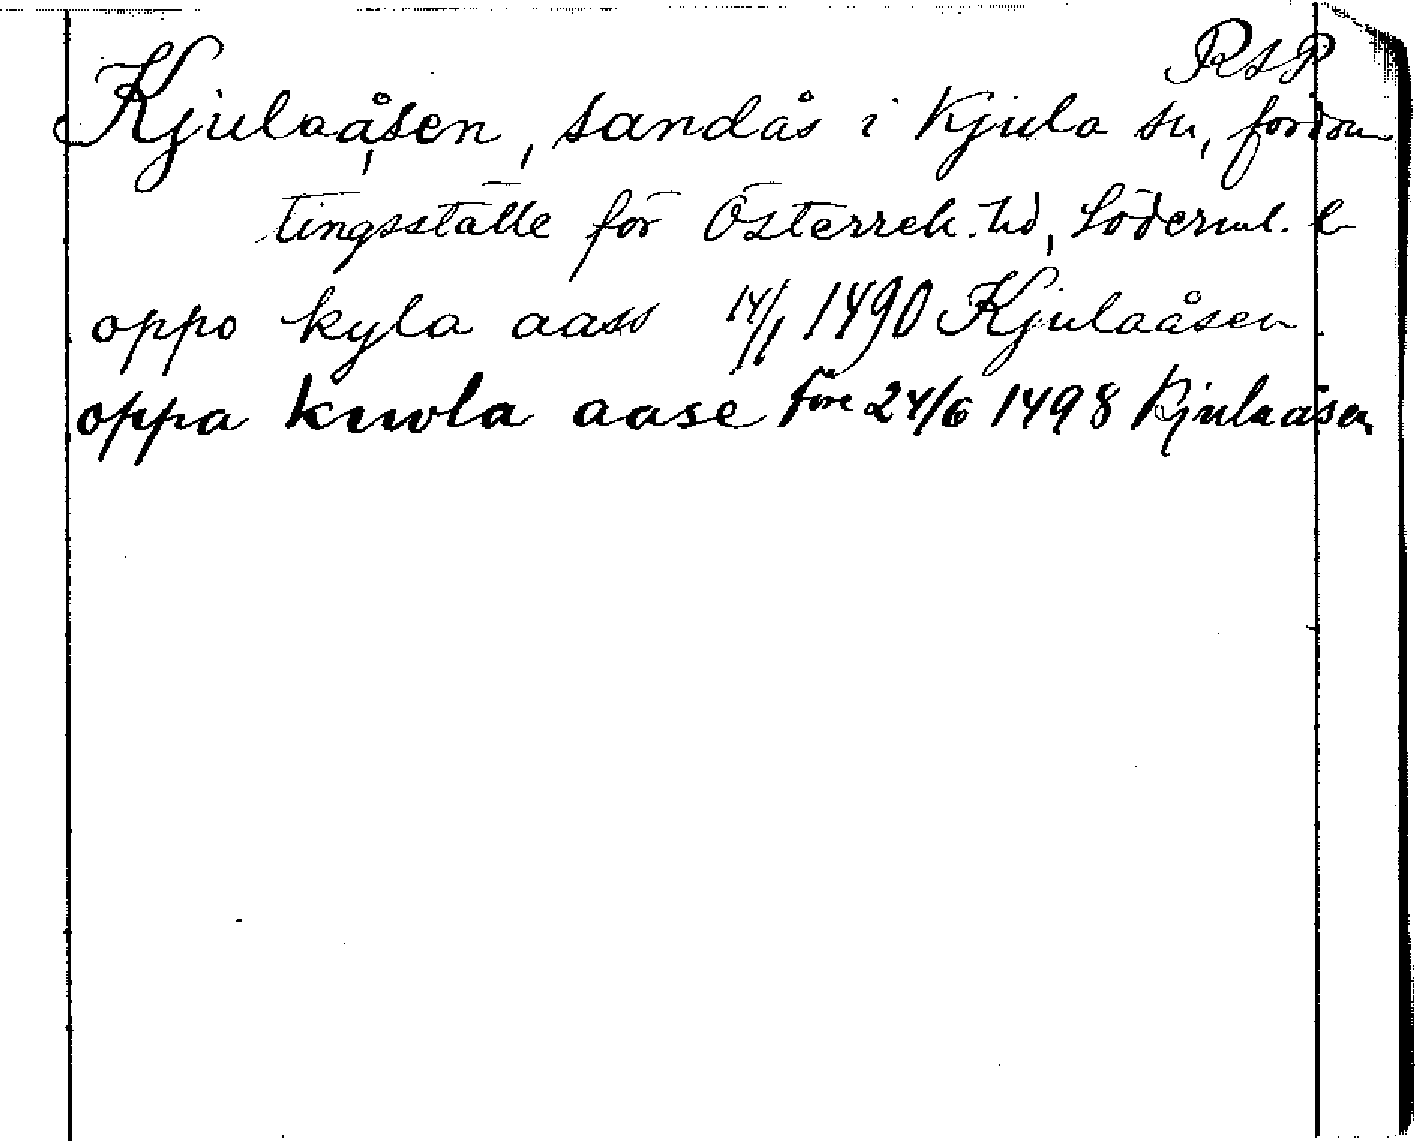 RAP
Kjulaåsen, sandås i Kjula sn, fordom
tingsställe för Österrek. hd, Söderml. l
oppo kyla aass 14/1 1490 Kjulaåsen
oppa kiwla aase före 24/6 1498 Kjulaåsen